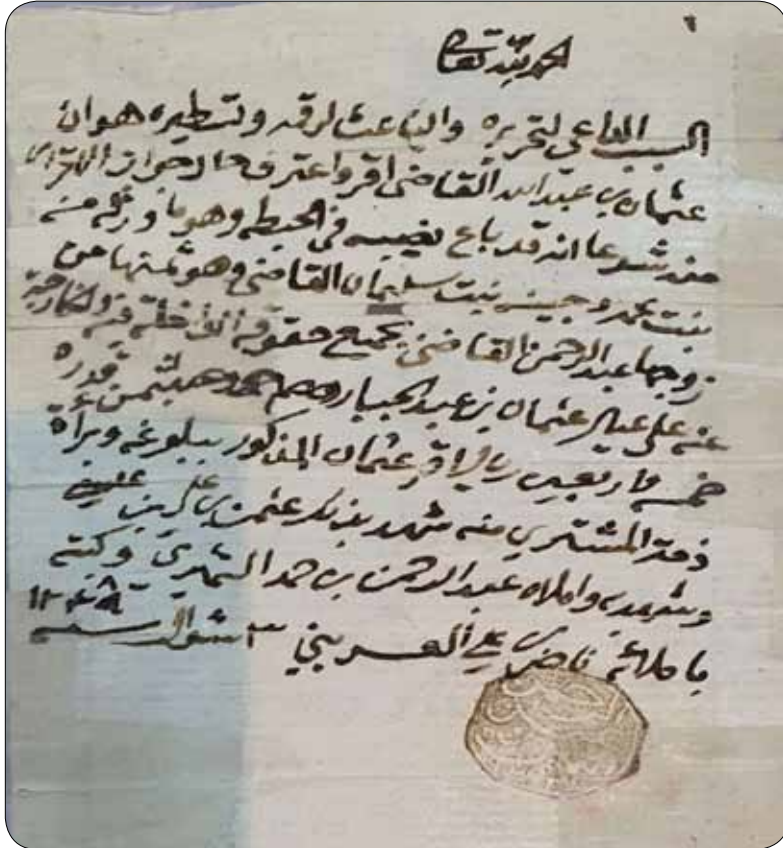 الحمد لله تعالى
السبب الداعي لتحريره والباعث لرقمه وتسطيره هو ان
عثمان بن عبد الله القاضي اقر واعترف حال جواز الاقرار
منه شرعا انه قد باع نصيبه في الحيطه وهو ما ورثه من
بنت محمد وجينه بنت سليمان القاضي وهو ثمنها من
زوجها عبد الرحمن القاضي بجميع حقوقه الداخلة فيه والخارجة
عنه على عيال عثمان بن عبد الجبار وهم حمد بثمن قدره
خمسه واربعين ريال اقر عثمان المذكور ببلوغه وبراة
ذمة المشتري منه شهد بذلك عثمن بن علي بن
وشهد به واملاه عبد الرحمن بن حمد الشمري وكتبه
باملائه ناصر بن علي العريني ٣ شوال سنه ١٣٤٨